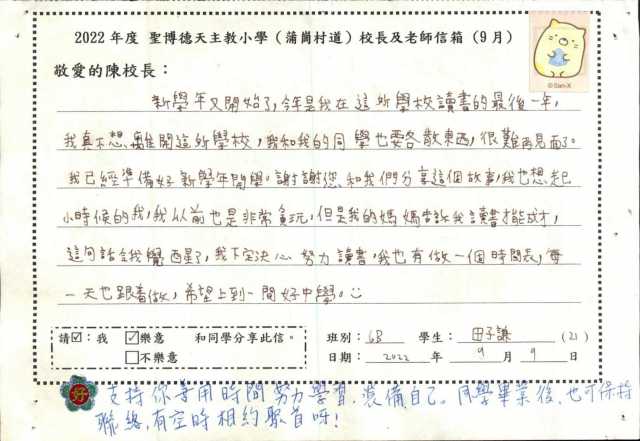 2022 年度 聖博德天主教小學（蒲崗村道）校長及老師信箱（9月）
敬愛的陳校長：
新學年又開始了，今年是我在這所學校讀書的最後一年，
我真不想離開這所學校，我和我的同學也要各散東西，很難再見面了。
我已經準備好新學年開學。謝謝您和我們分享這個故事，我也想起
小時候的我，我以前也是非常貪玩，但是我的媽媽告訴我讀書才能成才，
這句話令我覺醒了，我下定決心努力讀書，我也有做一個時間表，每
一天也跟着做，希望上到一間好中學。
©San-X
請☑：我 ☑樂意 和同學分享此信。 班別：6B 學生：田子謙 (21)
□不樂意 日期：2022 年 9 月 9 日
好
支持你善用時間努力學習，裝備自己。同學畢業後，也可保持
聯絡，有空時相約聚首呀！